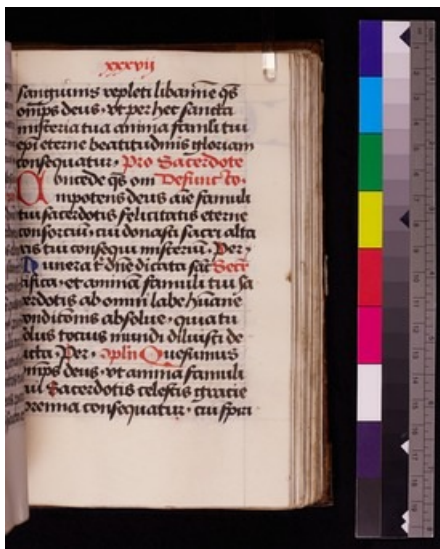 xxxvij
sanguinis repleti libamine qs
omps deus · vt per hec sancta
misteria tua anima famuli tui
epi eterne beatitudinis gloriam
consequatur · Pro Sacerdote
Concede qs om Defuncto ·
nipotens deus aie famuli
tui sacerdotis felicitatis eterne
consortiu cui donasti sacri alta
ris tui consequi misteriu · Per ·
Munera t dne dicata Secr
ifica · et animā famuli tui sa
erdotis ab omni labe humane
onditionis absolue · quia tu
olus tocius mundi diluisti de
icta · Per · Qvesumus
omps deus · vt anima famuli
tui Sacerdotis celestis gratie
premia consequatur · cui